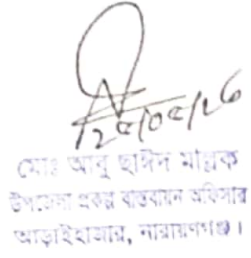 মোঃ আবু ছাঈদ মল্লিক
উপজেলা প্রকল্প বাস্তবায়ন অফিসার
আড়াইহাজার, নারায়ণগঞ্জ।